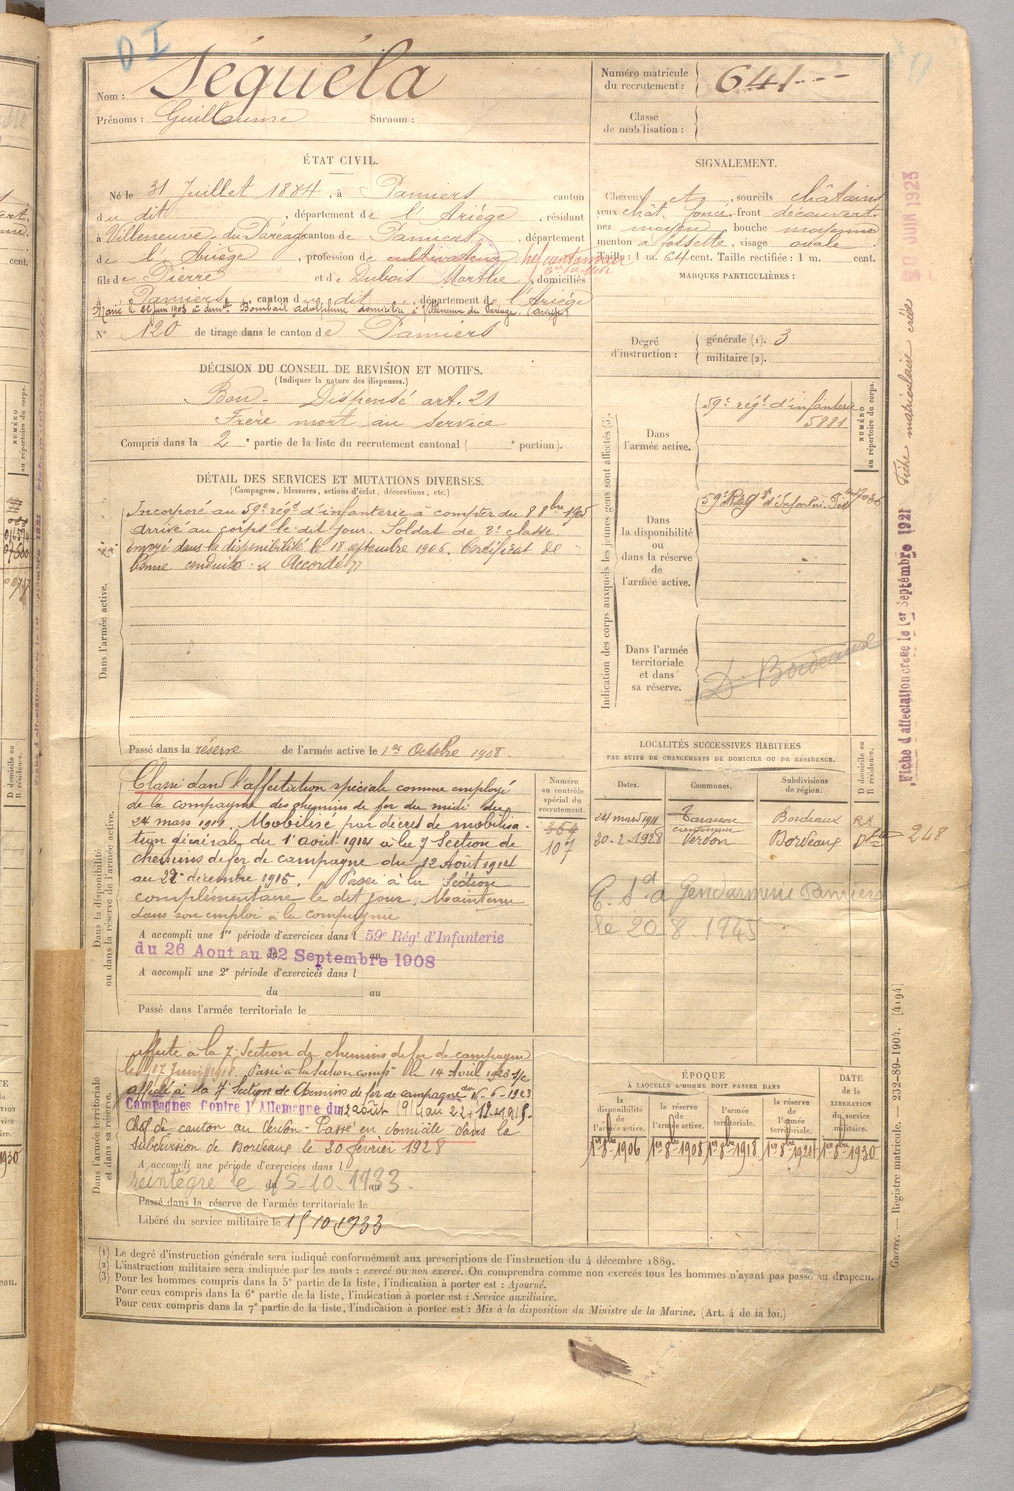 Nom : Séguéla
Prénoms : Guillaume Surnom :
Numéro matricule du recrutement : 641
Classe de mobilisation :
ÉTAT CIVIL.
Né le 31 Juillet 1884, à Pamiers canton
du dit, département de l'Ariège, résidant
à Villeneuve du Pareage canton de Pamiers, département
de l'Ariège, profession de cultivateur
fils de Pierre et de Dubois Marthe, domiciliés
à Pamiers, canton du dit, département de l'Ariège
N° 120 de tirage dans le canton de Pamiers
SIGNALEMENT.
Cheveux et sourcils châtains
yeux chât. foncé, front découvert
nez moyen, bouche moyenne
menton à fossette, visage ovale
Taille : 1 m. 64 cent. Taille rectifiée : 1 m. cent.
MARQUES PARTICULIÈRES :
Degré d'instruction : générale (1). 3
militaire (2).
DÉCISION DU CONSEIL DE REVISION ET MOTIFS.
(Indiquer la nature des dispenses.)
Bon - Dispensé art. 21
Frère mort au service
Compris dans la 2e partie de la liste du recrutement cantonal ( e portion).
DÉTAIL DES SERVICES ET MUTATIONS DIVERSES.
(Campagnes, blessures, actions d'éclat, décorations, etc.)
Dans l'armée active.
Incorporé au 59e régt d'infanterie à compter du 8 8bre 1905
arrivé au corps le dit jour. Soldat de 2e classe.
envoyé dans la disponibilité le 18 septembre 1906. Certificat de
bonne conduite : "Accordé"
Passé dans la réserve de l'armée active le 1er Octobre 1908.
Indication des corps auxquels les jeunes gens sont affectés (3).
NUMÉRO au répertoire du corps.
Dans l'armée active.
59e régt d'infanterie
5881
Dans la disponibilité ou dans la réserve de l'armée active.
59e Régt d'Infantrie
Dans l'armée territoriale et dans sa réserve.
Dn Bordeaux
Dans la disponibilité ou dans la réserve de l'armée active.
Classé dans l'affectation spéciale comme employé
de la compagnie des chemins de fer du midi du
24 mars 1911. Mobilisé par décret de mobilisa-
tion générale du 1er août 1914 à la 7e Section de
chemins de fer de campagne du 12 Août 1914
au 22 décembre 1915. Passé à la Section
complémentaire le dit jour. Maintenu
dans son emploi à la compagnie
Numéro au contrôle spécial du recrutement.
354
107
A accompli une 1re période d'exercices dans l 59e Régt d'Infanterie
du 26 Aout au 22 Septembre 1908
A accompli une 2e période d'exercices dans l
du au
Passé dans l'armée territoriale le
LOCALITÉS SUCCESSIVES HABITÉES
PAR SUITE DE CHANGEMENTS DE DOMICILE OU DE RÉSIDENCE.
Dates. Communes. Subdivisions de région. D domicile ou R résidence.
24 mars 1911 Bordeaux
20-2-1928 Verdon Bordeaux
248
Gendarmerie Pamiers
le 20 8 1945
Dans l'armée territoriale et dans sa réserve.
affecté à la 7e Section de chemins de fer de campagne
le 14 Avril 1923
affecté à la 7e Section de Chemins de fer de campagne
Campagnes contre l'Allemagne du 12 août 1914 au 22-12-1915.
Chef de canton au Verdon - Passé en domicile dans la
Subdivision de Bordeaux le 20 février 1928
A accompli une période d'exercices dans l
réintégré le 5-10-1933.
Passé dans la réserve de l'armée territoriale le
Libéré du service militaire le 15 10 1933
ÉPOQUE
À LAQUELLE L'HOMME DOIT PASSER DANS
la disponibilité de l'armée active. la réserve de l'armée active. l'armée territoriale. la réserve de l'armée territoriale. DATE de la LIBÉRATION du service militaire.
1er 8bre 1906 1er 8bre 1908 1er 8bre 1918 1er 8bre 1924 1er 8bre 1930
(1) Le degré d'instruction générale sera indiqué conformément aux prescriptions de l'instruction du 4 décembre 1889.
(2) L'instruction militaire sera indiquée par les mots : exercé ou non exercé. On comprendra comme non exercés tous les hommes n'ayant pas passé au drapeau.
(3) Pour les hommes compris dans la 5e partie de la liste, l'indication à porter est : Ajourné.
Pour ceux compris dans la 6e partie de la liste, l'indication à porter est : Service auxiliaire.
Pour ceux compris dans la 7e partie de la liste, l'indication à porter est : Mis à la disposition du Ministre de la Marine. (Art. 4 de la loi.)
Fiche d'affectation créée le 1er Septembre 1921
Fiche matriculaire créée
20 JUIN 1923
Guerre. — Registre matricule. — 232-89-1904. [4194]